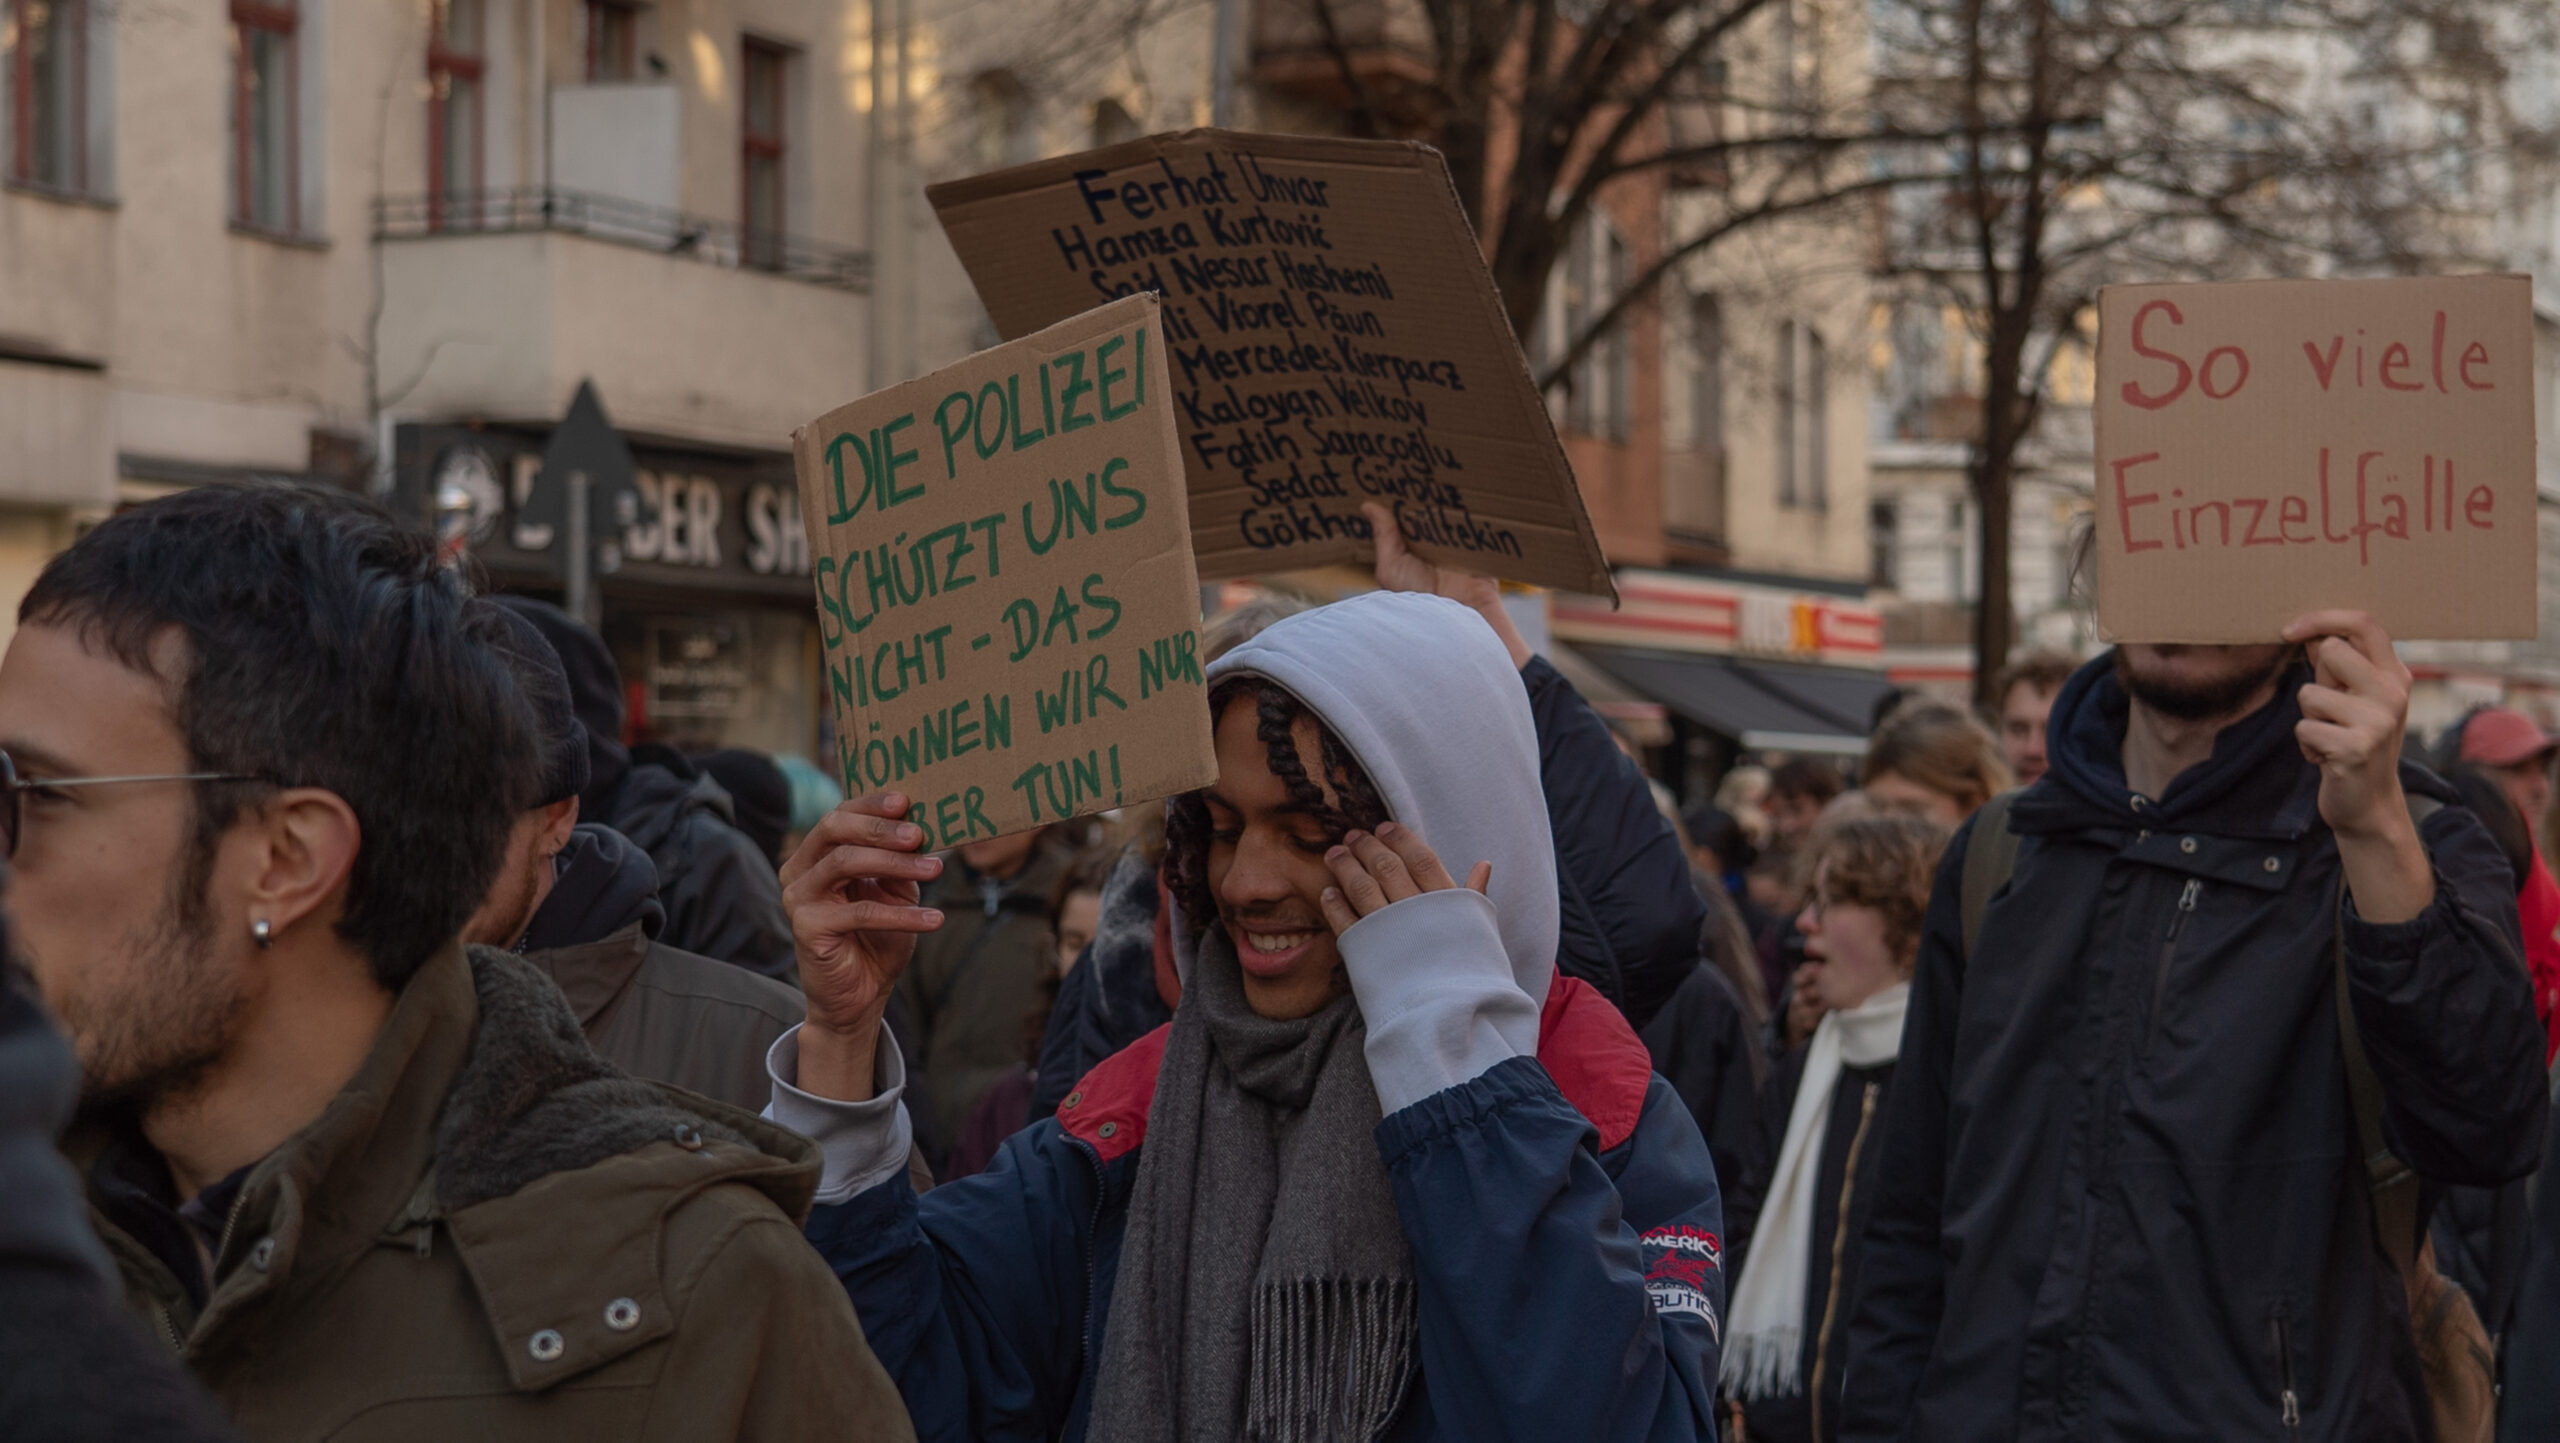 Ferhat Unvar
Hamza Kurtović
Said Nesar Hashemi
Viorel Păun
Mercedes Kierpacz
Kaloyan Velkov
Fatih Saraçoğlu
Sedat Gürbüz
Gültekin
DIE POLIZEI
SCHÜTZT UNS
NICHT - DAS
KÖNNEN WIR NUR
TUN!
So viele
Einzelfälle